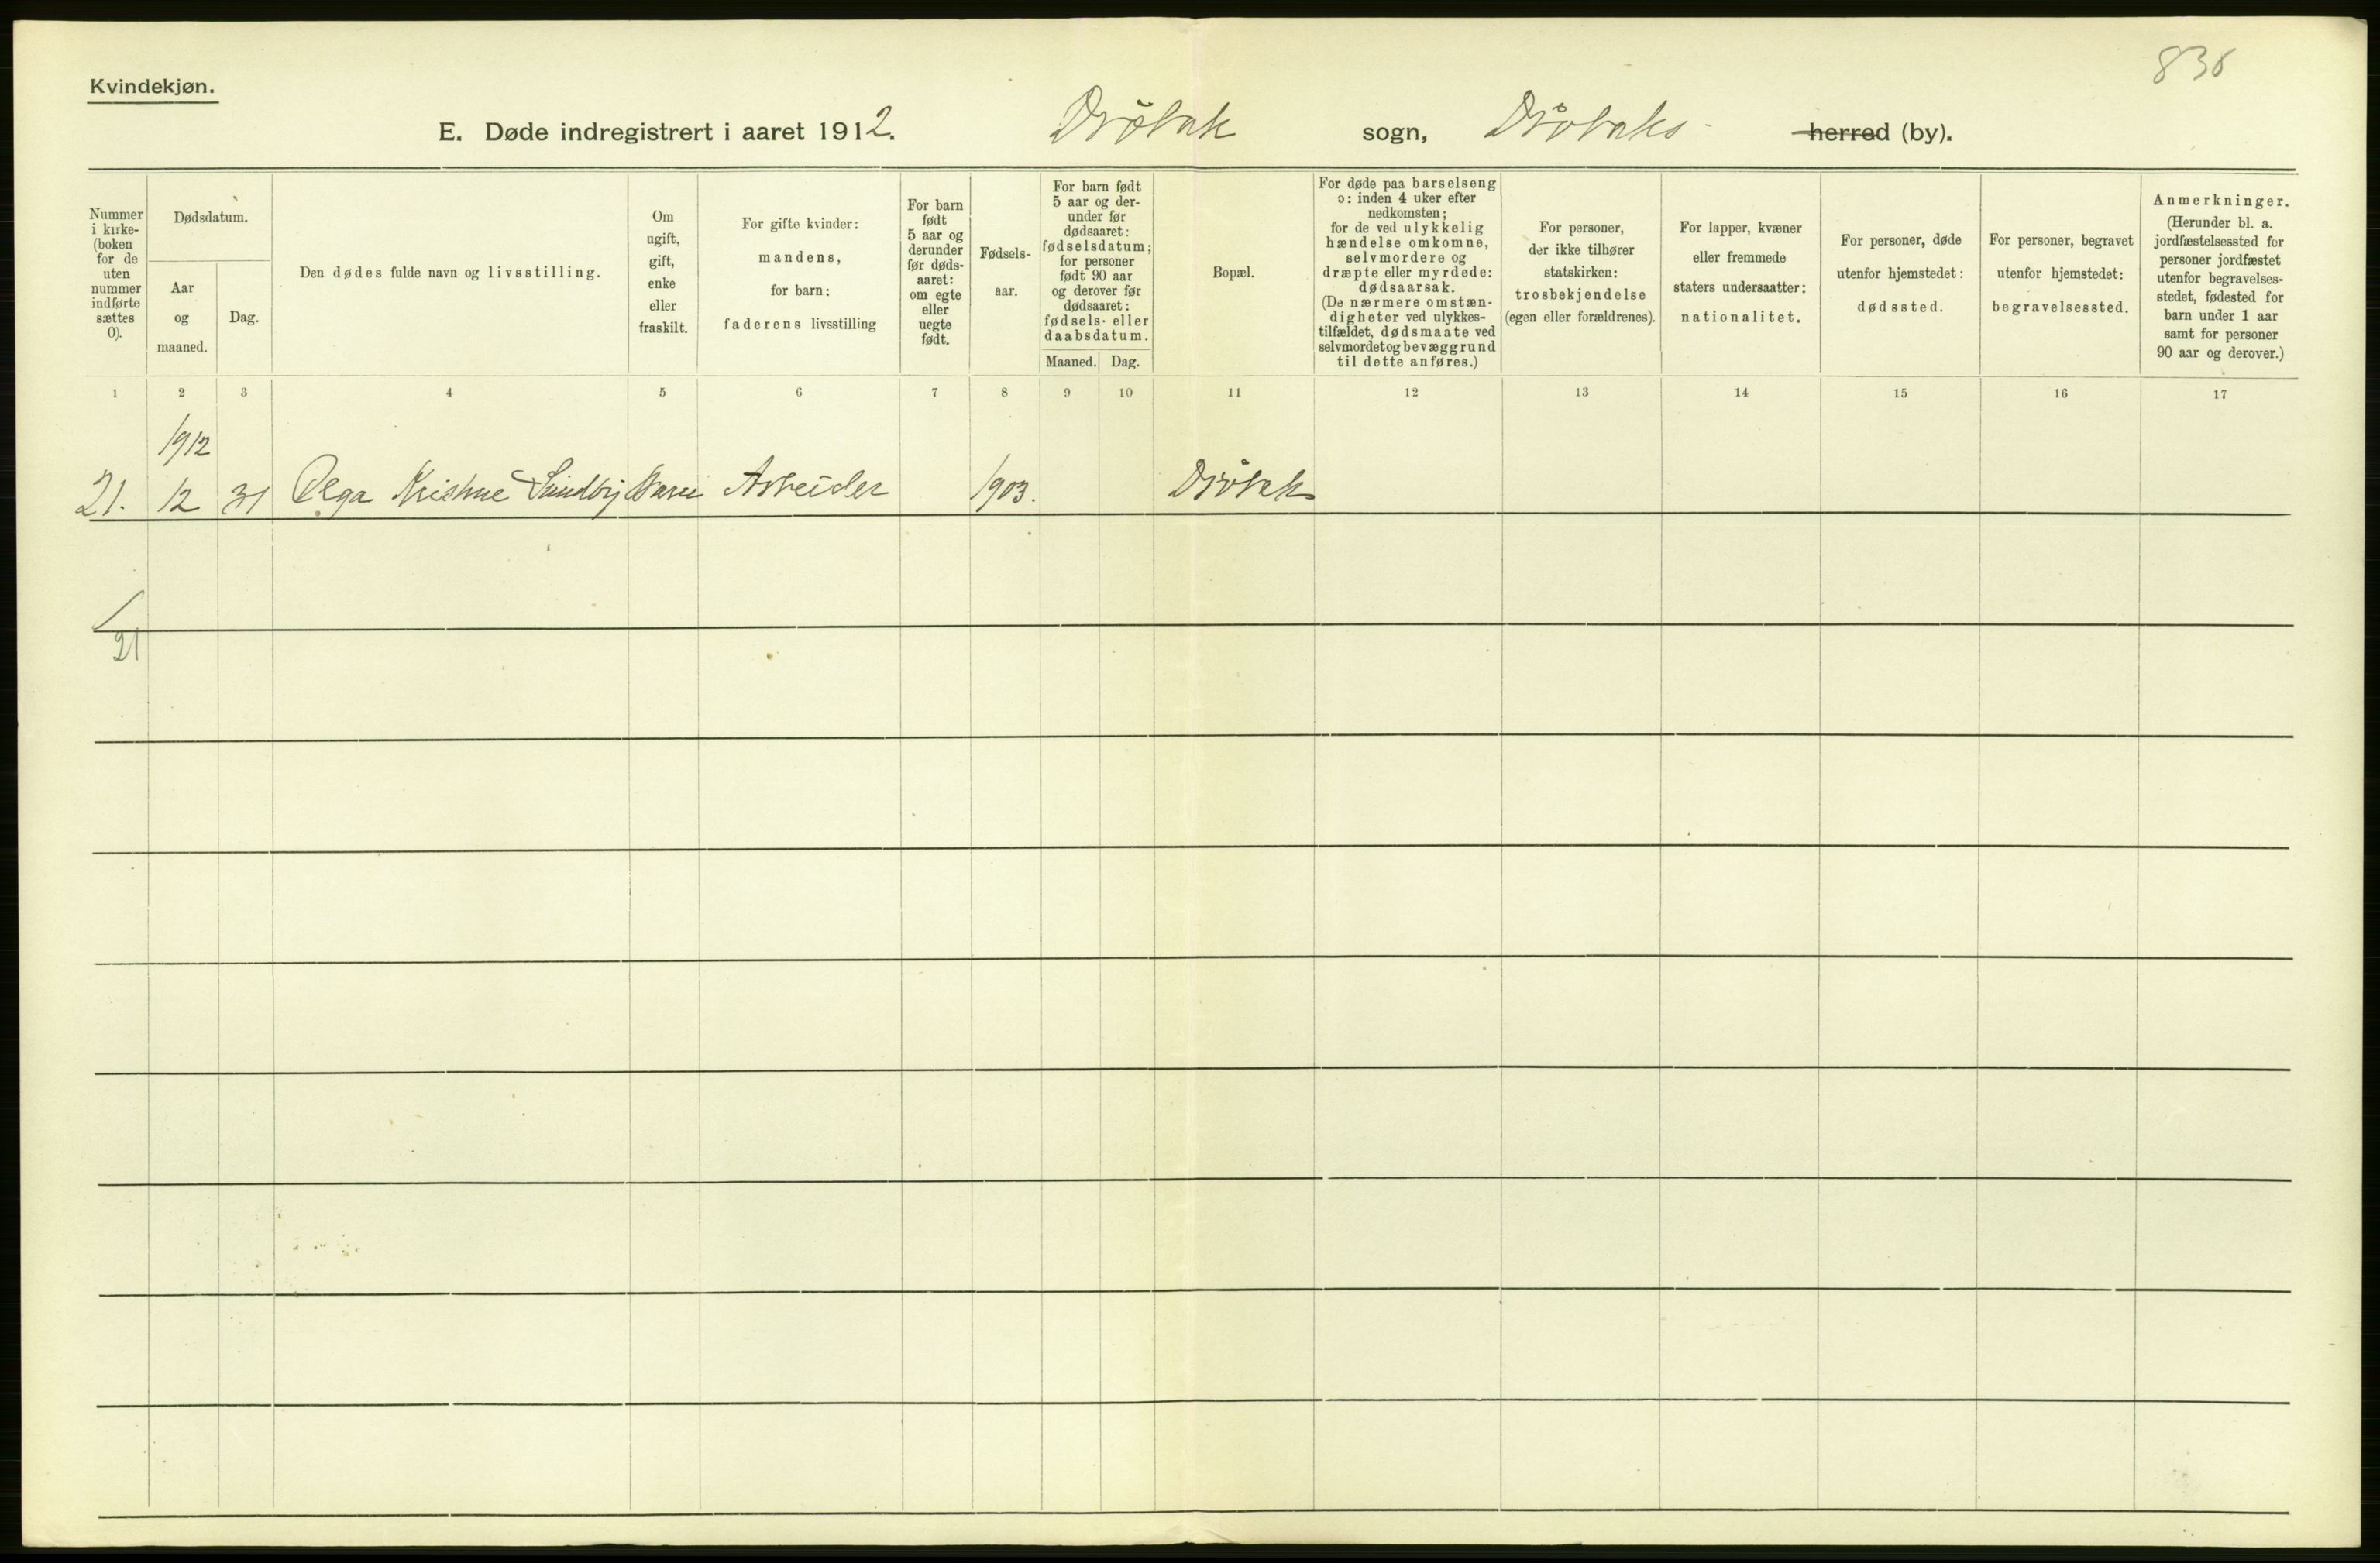 836
Kvindekjøn.
E. Døde indregistrert i aaret 1912. Drøbak sogn, Drøbaks herred (by).
Nummer
i kirke-
(boken
for de
uten
nummer
indførte
sættes
0).
Dødsdatum.
Aar
og
maaned.
Dag.
Den dødes fulde navn og livsstilling.
Om
ugift,
gift,
enke
eller
fraskilt.
For gifte kvinder:
mandens,
for barn:
faderens livsstilling
For barn
født
5 aar og
derunder
før døds-
aaret:
om egte
eller
uegte
født.
Fødsels-
aar.
For barn født
5 aar og der-
under før
dødsaaret:
fødselsdatum;
for personer
født 90 aar
og derover før
dødsaaret:
fødsels- eller
daabsdatum.
Maaned. Dag.
Bopæl.
For døde paa barselseng
ɔ: inden 4 uker efter
nedkomsten;
for de ved ulykkelig
hændelse omkomne,
selvmordere og
dræpte eller myrdede:
dødsaarsak.
(De nærmere omstæn-
digheter ved ulykkes-
tilfældet, dødsmaate ved
selvmordet og bevæggrund
til dette anføres.)
For personer,
der ikke tilhører
statskirken:
trosbekjendelse
(egen eller forældrenes).
For lapper, kvæner
eller fremmede
staters undersaatter:
nationalitet.
For personer, døde
utenfor hjemstedet:
dødssted.
For personer, begravet
utenfor hjemstedet:
begravelsessted.
Anmerkninger.
(Herunder bl. a.
jordfæstelsessted for
personer jordfæstet
utenfor begravelses-
stedet, fødested for
barn under 1 aar
samt for personer
90 aar og derover.)
1 2 3 4 5 6 7 8 9 10 11 12 13 14 15 16 17
1912
21. 12 31 Olga Kristine Sundby Barn Arbeider 1903. Drøbak
21